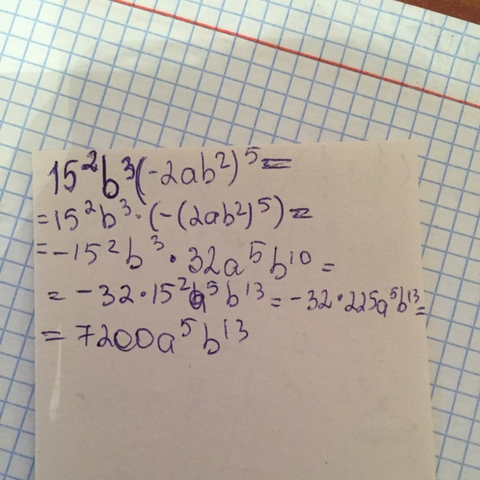 15²b³(-2ab²)⁵=
=15²b³·(-(2ab²)⁵)=
=-15²b³·32a⁵b¹⁰=
=-32·15²a⁵b¹³=-32·225a⁵b¹³=
=7200a⁵b¹³